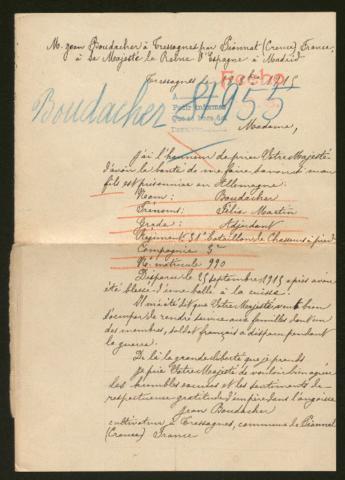 M. Jean Boudacher à Tressagnes par Pionnat (Creuse) France,
à Sa Majesté la Reine d'Espagne à Madrid
Tressagnes le 1915
Fecho
Boudacher 8955
Madame,
J'ai l'honneur de prier Votre Majesté
d'avoir la bonté de me faire savoir si mon
fils est prisonnier en Allemagne:
Nom: Boudacher
Prénoms: Félix Martin
Grade: Adjudant
Régiment 31e bataillon de Chasseurs à pied
Compagnie 3me
No matricule 990
Disparu le 25 septembre 1915 après avoir
été blessé d'une balle à la cuisse.
Il m'a été dit que Votre Majesté veut bien
s'occuper de rendre service aux familles dont un
des membres, soldat français a disparu pendant
la guerre.
De là la grande liberté que je prends
Je prie Votre Majesté de vouloir bien agréer
les humbles excuses et les sentiments de
respectueuse gratitude d'un père dans l'angoisse
Jean Boudacher
cultivateur à Tressagnes, commune de Pionnat
(Creuse) France